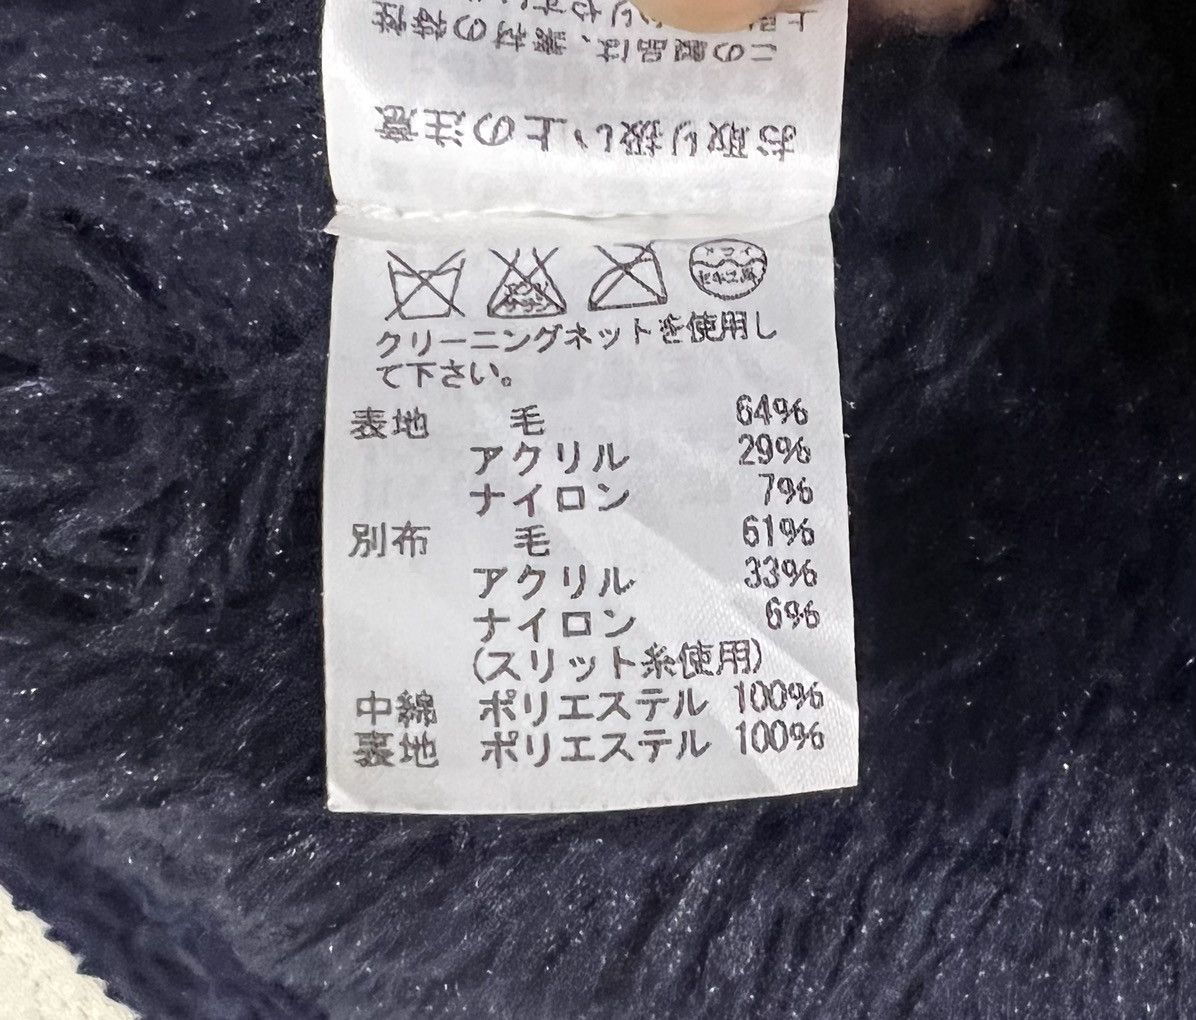 この製品は、素材の特性
お取り扱い上の注意
エンソ
サラシ
ドライ
セキユ系
クリーニングネットを使用し
て下さい。
表地 毛 64%
アクリル 29%
ナイロン 7%
別布 毛 61%
アクリル 33%
ナイロン 6%
(スリット糸使用)
中綿 ポリエステル 100%
裏地 ポリエステル 100%